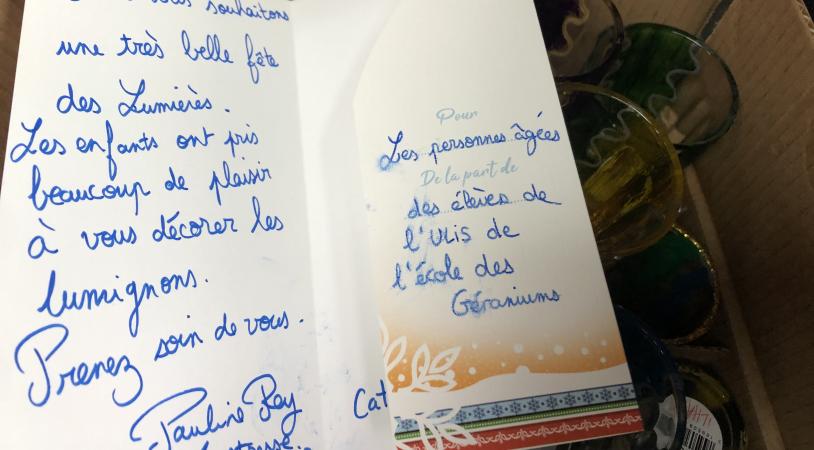 vous souhaitons
une très belle fête
des Lumières.
Les enfants ont pris
beaucoup de plaisir
à vous décorer les
lumignons.
Prenez soin de vous.
Pauline Rey
Cat
Pour
Les personnes âgées
De la part de
des élèves de
l'ULIS de
l'école des
Géraniums